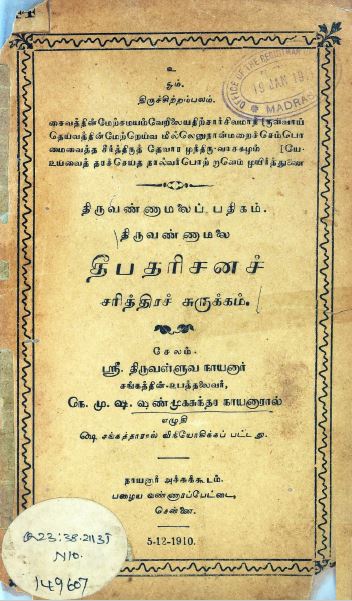 உ
ஓம்.
திருச்சிற்றம்பலம்.
சைவத்தின்மேற்சமயம்வேறிலையதிற்சார்சிவமாந்
தெய்வத்தின்மேற்றெய்வ மில்லெனுநான்மறைச்செம்பொ
மைவைத்த சீர்த்திருத் தேவார முந்திரு வாசகமும்
உய்வைத் தரச்செய்த நால்வர்பொற் றாளெம் முயிர்த்துணை
திருவண்ணாமலைப் பதிகம்.
திருவண்ணாமலை
தீபதரிசனச்
சரித்திரச் சுருக்கம்.
சேலம்.
ஸ்ரீ. திருவள்ளுவ நாயனார்
சங்கத்தின்-உபத்தலைவர்,
சே. மு. ஷ. ஷண்முகசுந்தர நாயனாரால்
எழுதி
௸ சங்கத்தாரால் விநியோகிக்கப் பட்டது.
நாயனார் அச்சுக்கூடம்.
பழைய வண்ணாரப்பேட்டை,
சென்னை.
5-12-1910.
OFFICE OF THE REGISTRAR
19 JAN 191
MADRAS
N10.
149607